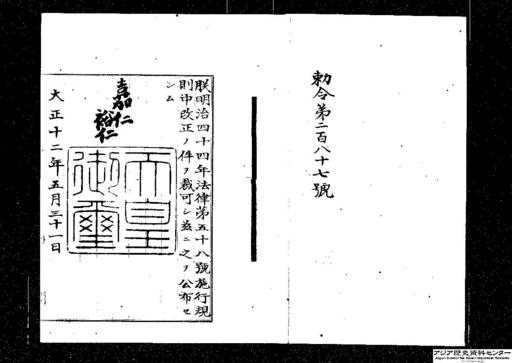 勅令第二百八十七號
朕明治四十四年法律第五十八號施行規
則中改正ノ件ヲ裁可シ茲ニ之ヲ公布セ
シム
嘉仁
裕仁
天皇
御璽
大正十二年五月三十一日
アジア歴史資料センター
Japan Center for Asian Historical Records